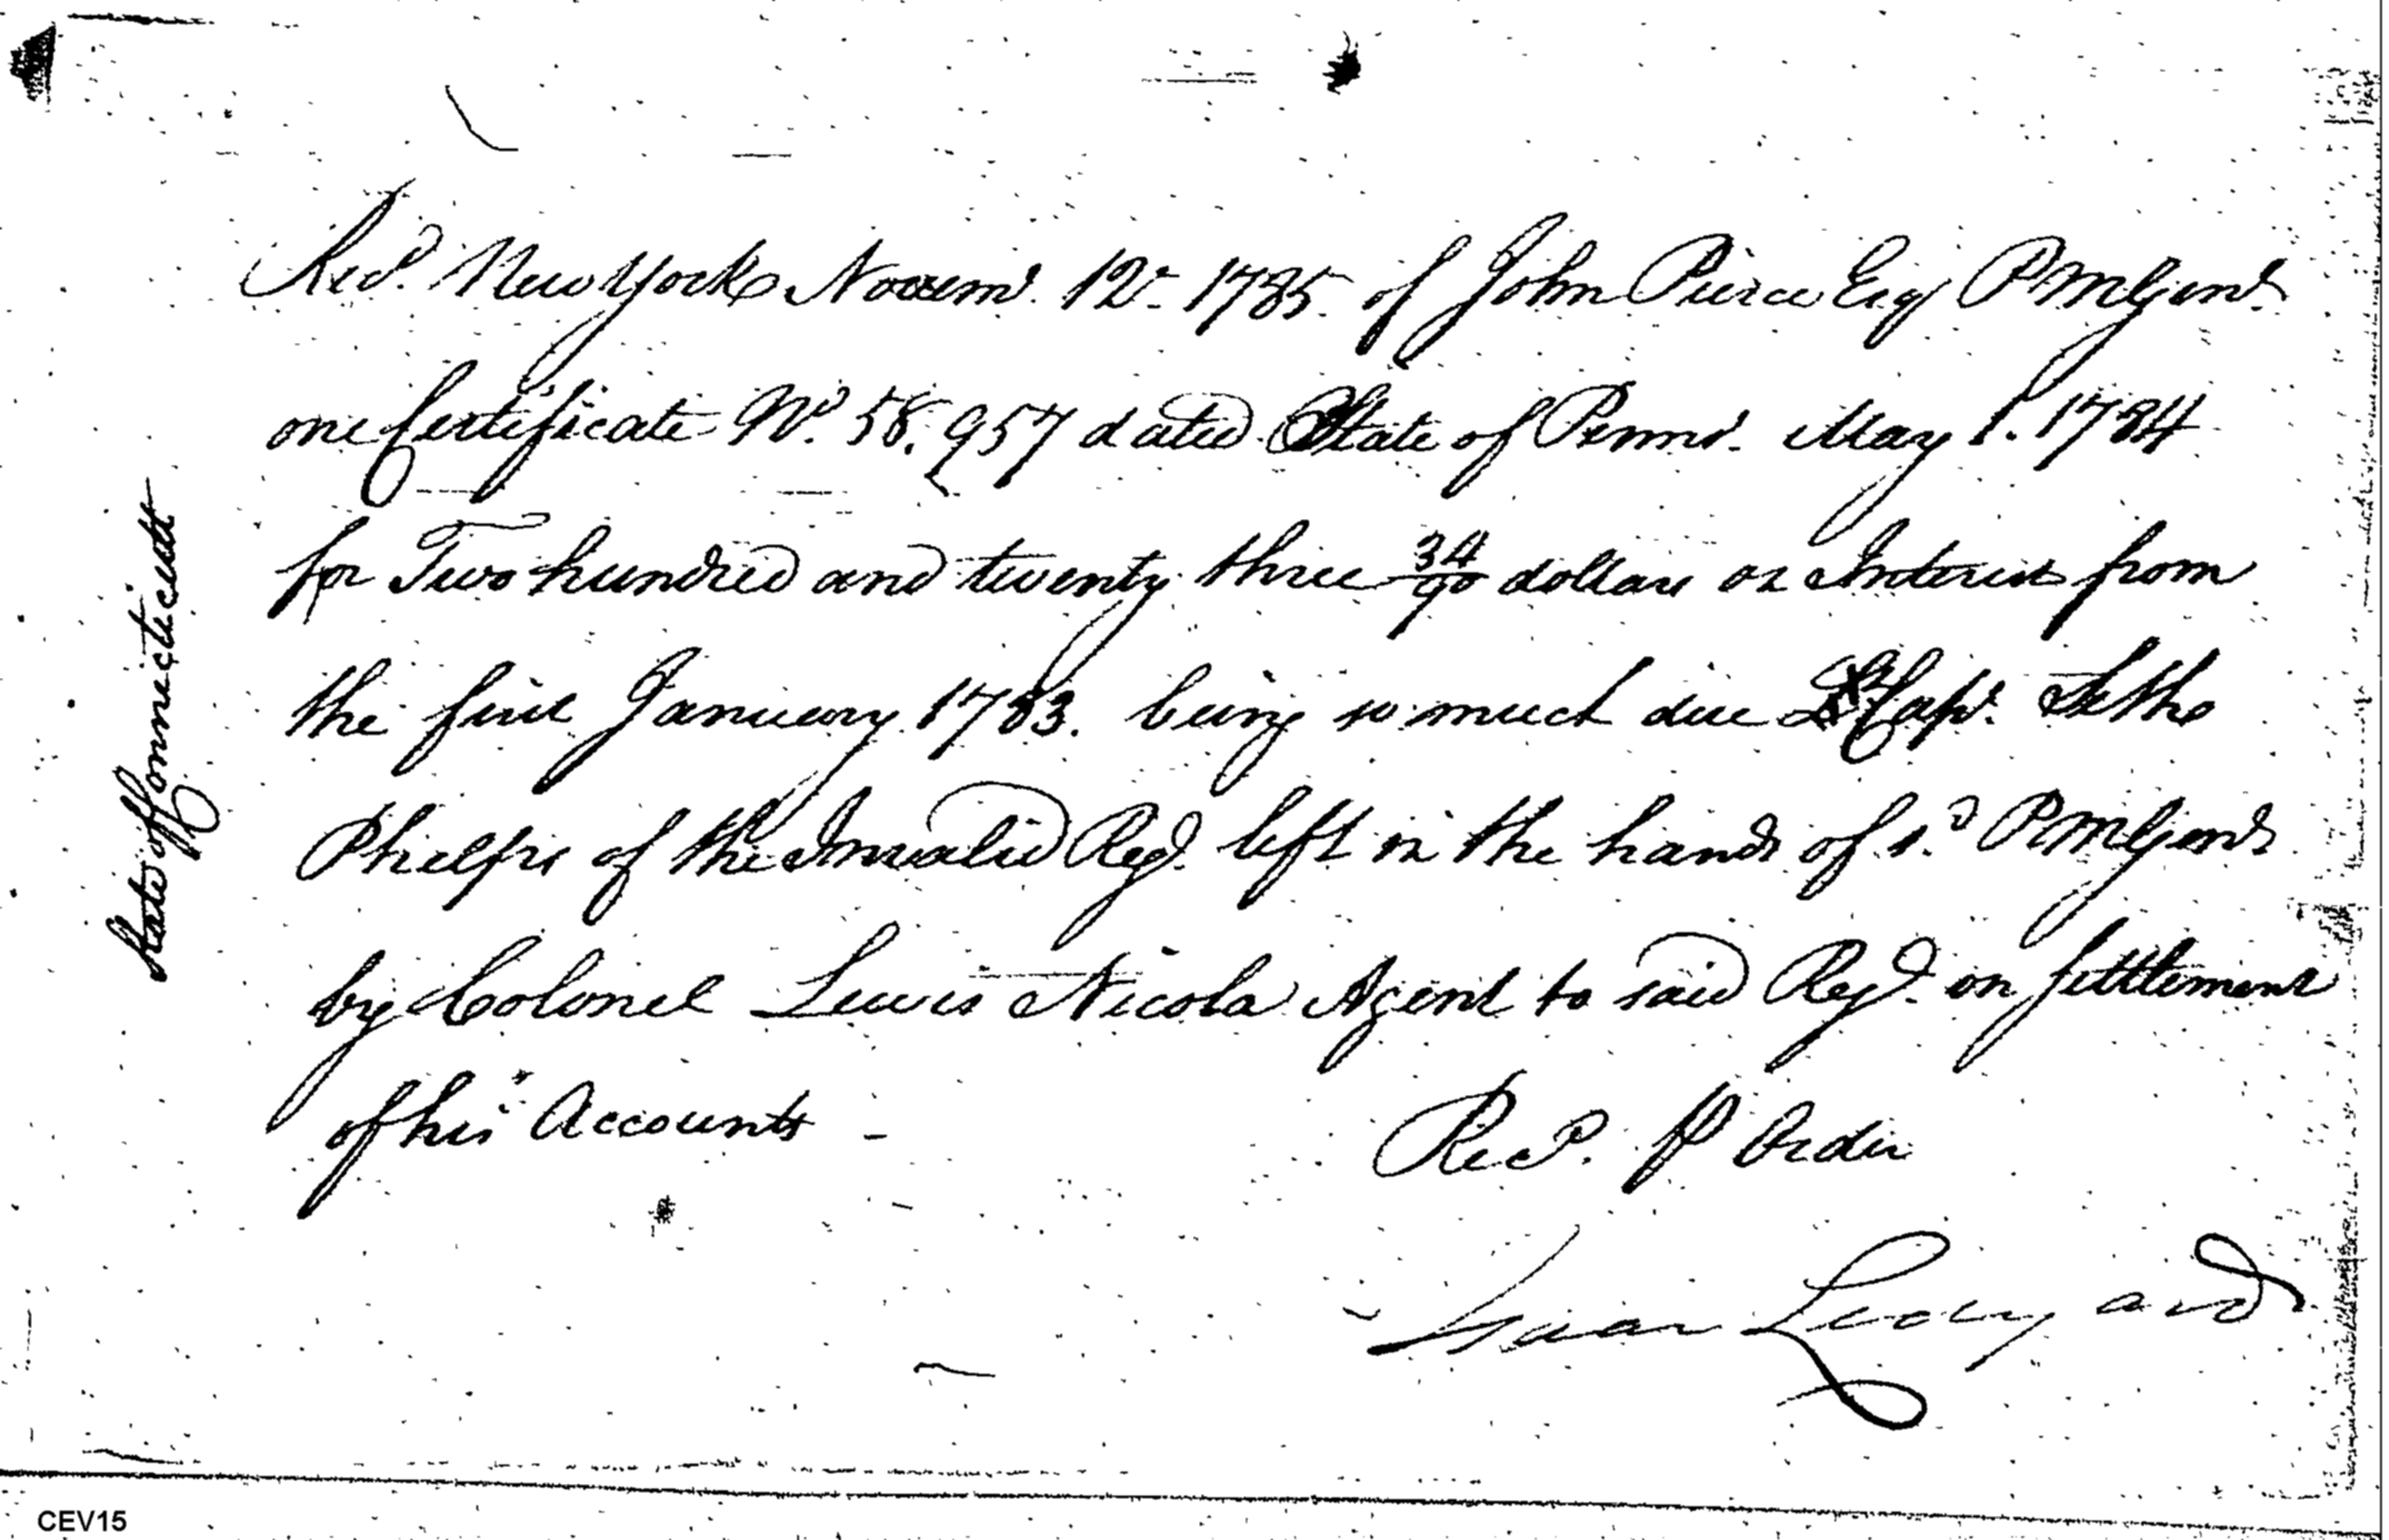 Rec'd. New York Novem'r. 12. 1785. of John Pierce Esq P M Genl.
one Certificate No. 58.957 dated State of Penns'. May 1. 1784
for Two hundred and twenty three 34/90 dollars on Interest from
the first January 1783. being so much due Cap'. Seth
Phelps of the Invalid Reg'. left in the hands of s'd P M Genl
by Colonel Lewis Nicola Agent to said Reg'. on settlement
of his Accounts -
Rec'd. P Order
Isaac Ledyard
State of Connecticutt
CEV15